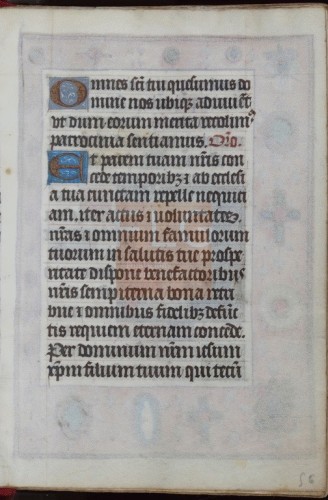 Omnes sc̄i tui quesumus do
mine nos ubiqȝ adiuuēt
vt dum eorum merita recolim⁹
patrocinia sentiamus. Oro.
Et pacem tuam nr̄is con
cede temporibȝ ⁊ ab ecclesi
a tua cunctam repelle nequici
am. iter actus ⁊ uoluntates.
nr̄as ⁊ omnium famulorum
tuorum in salutis tue prospe
ritate dispone benefactoribus
nr̄is sempiterna bona retri
bue ⁊ omnibus fidelibȝ defūc
tis requiem eternam concede.
Per dominum nr̄m iesum
xp̄m filium tuum qui tecū